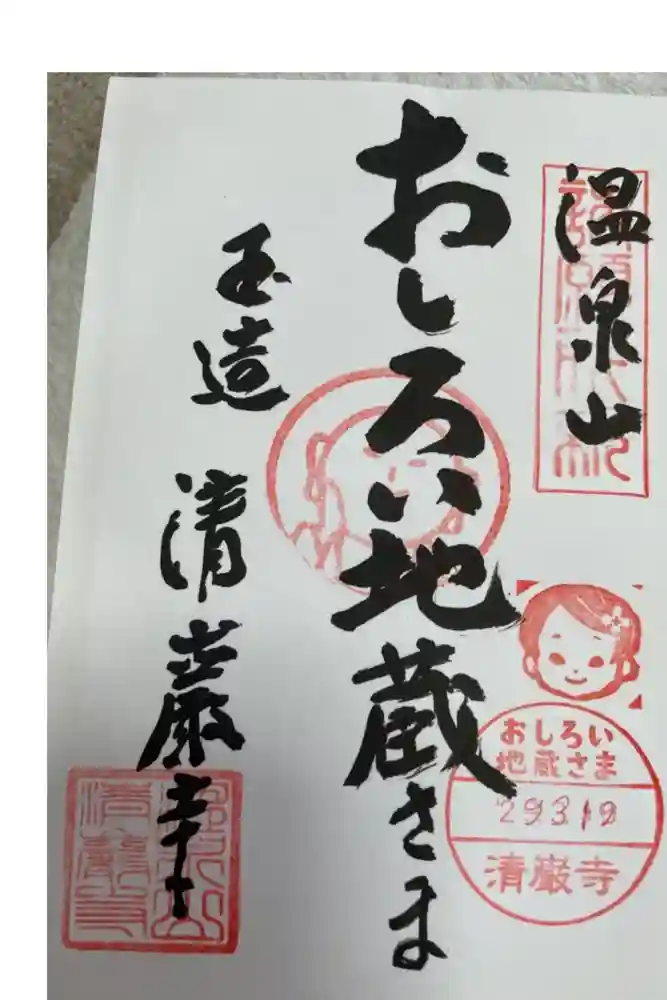 温泉山
おしろい地蔵さま
玉造 清巖寺
おしろい
地蔵さま
29.3.19
清巌寺